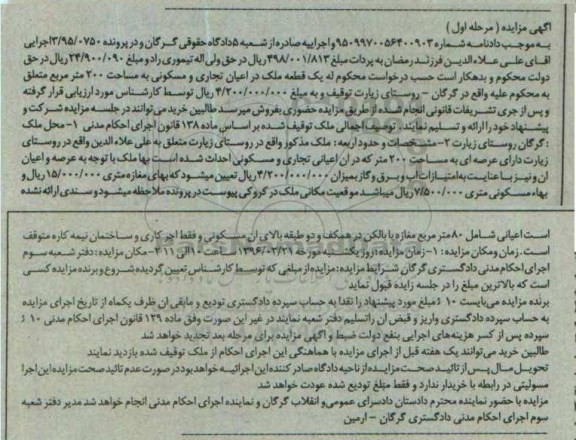 آگهی مزایده ( مرحله اول )
به موجب دادنامه شماره ۹۵۰۹۹۷۰۰۵۶۴۰۰۹۰۳ و اجراییه صادره از شعبه ۵ دادگاه حقوقی گرگان و در پرونده ۳/۹۵/۰۷۵۰ اجرایی
آقای علی علاء الدین فرزند رمضان به پرداخت مبلغ ۴۹۸/۰۰۱/۸۱۳ ریال در حق ولی اله تیموری راد و مبلغ ۲۴/۹۰۰/۰۹۰ ریال در حق
دولت محکوم و بدهکار است حسب درخواست محکوم له یک قطعه ملک در اعیان تجاری و مسکونی به مساحت ۲۰۰ متر مربع متعلق
به محکوم علیه واقع در گرگان - روستای زیارت توقیف و به مبلغ ۴/۲۰۰/۰۰۰/۰۰۰ ریال توسط کارشناس مورد ارزیابی قرار گرفته
و پس از جری تشریفات قانونی انجام شده از طریق مزایده حضوری بفروش میرسد طالبین خرید می توانند در جلسه مزایده شرکت و
پیشنهاد خود را ارائه و تسلیم نمایند. توصیف اجمالی ملک توقیف شده بر اساس ماده ۱۳۸ قانون اجرای احکام مدنی ۱- محل ملک
: گرگان روستای زیارت ۲- مشخصات و حدود اربعه : ملک مذکور واقع در روستای زیارت متعلق به علی علاء الدین واقع در روستای
زیارت دارای عرصه ای به مساحت ۲۰۰ متر که در آن اعیانی تجاری و مسکونی احداث شده است بها ملک با توجه به عرصه و اعیان
آن و نیز با عنایت به امتیازات آب و برق و گاز بمیزان ۴/۲۰۰/۰۰۰/۰۰۰ ریال تعیین میشود که بهای مغازه متری ۱۵/۰۰۰/۰۰۰ ریال و
بهاء مسکونی متری ۷/۵۰۰/۰۰۰ ریال میباشد موقعیت مکانی ملک در کروکی پیوست در پرونده ملاحظه میشود و سندی ارائه نشده
است اعیانی شامل ۸۰ متر مربع مغازه با بالکن در همکف و دو طبقه بالای آن مسکونی و فقط آجر کاری و ساختمان نیمه کاره متوقف
است . زمان ومکان مزایده : ۱- زمان مزایده : روز یکشنبه مورخه ۱۳۹۶/۰۲/۳۱ ساعت ۱۰ الی ۱۱ ۲- مکان مزایده : دفتر شعبه سوم
اجرای احکام مدنی دادگستری گرگان شرایط مزایده : مزایده از مبلغی که توسط کارشناس تعیین گردیده شروع و برنده مزایده کسی
است که بالاترین مبلغ را در جلسه زایده قبول نماید
برنده مزایده می بایست ۱۰ ٪ مبلغ مورد پیشنهاد را نقدا به حساب سپرده دادگستری تودیع و مابقی آن ظرف یکماه از تاریخ اجرای مزایده
به حساب سپرده دادگستری واریز و قبض آن راتسلیم دفتر شعبه نمایند در غیر این صورت وفق ماده ۱۲۹ قانون اجرای احکام مدنی ۱۰ ٪
سپرده پس از کسر هزینه های اجرایی بنفع دولت ضبط و آگهی مزایده برای مرحله بعد تجدید خواهد شد
طالبین خرید می توانند یک هفته قبل از اجرای مزایده با هماهنگی این اجرای احکام از ملک توقیف شده بازدید نمایند
تحویل مال پس از تائید صحت مزایده از ناحیه دادگاه صادر کننده این اجرائیه خواهد بود در صورت عدم تائید صحت مزایده این اجرا
مسولیتی در رابطه با خریدار ندارد و فقط مبلغ تودیع شده عودت خواهد شد
مزایده با حضور نماینده محترم دادستان دادسرای عمومی و انقلاب گرگان و نماینده اجرای احکام مدنی انجام خواهد شد مدیر دفتر شعبه
سوم اجرای احکام مدنی دادگستری گرگان - آرمین